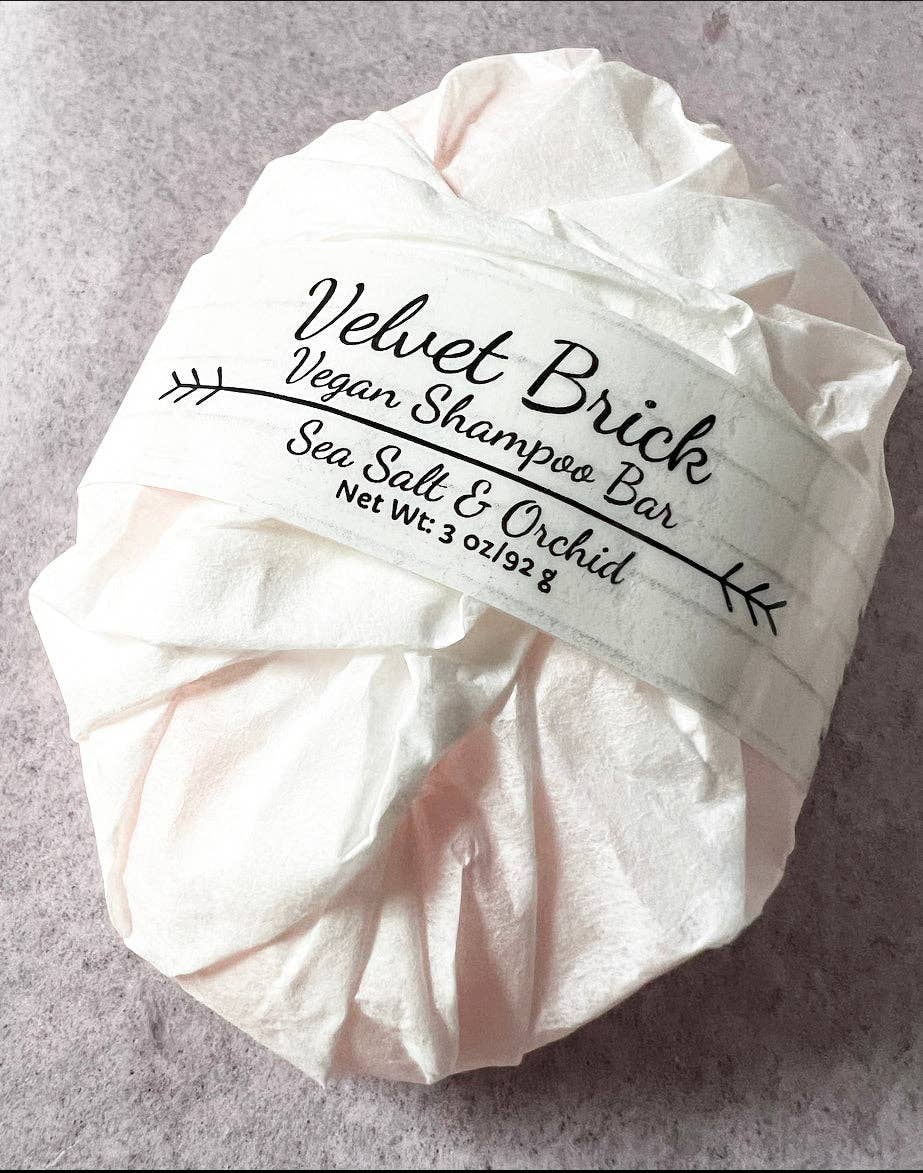 Velvet Brick
Vegan Shampoo Bar
Sea Salt & Orchid
Net Wt: 3 oz/92 g